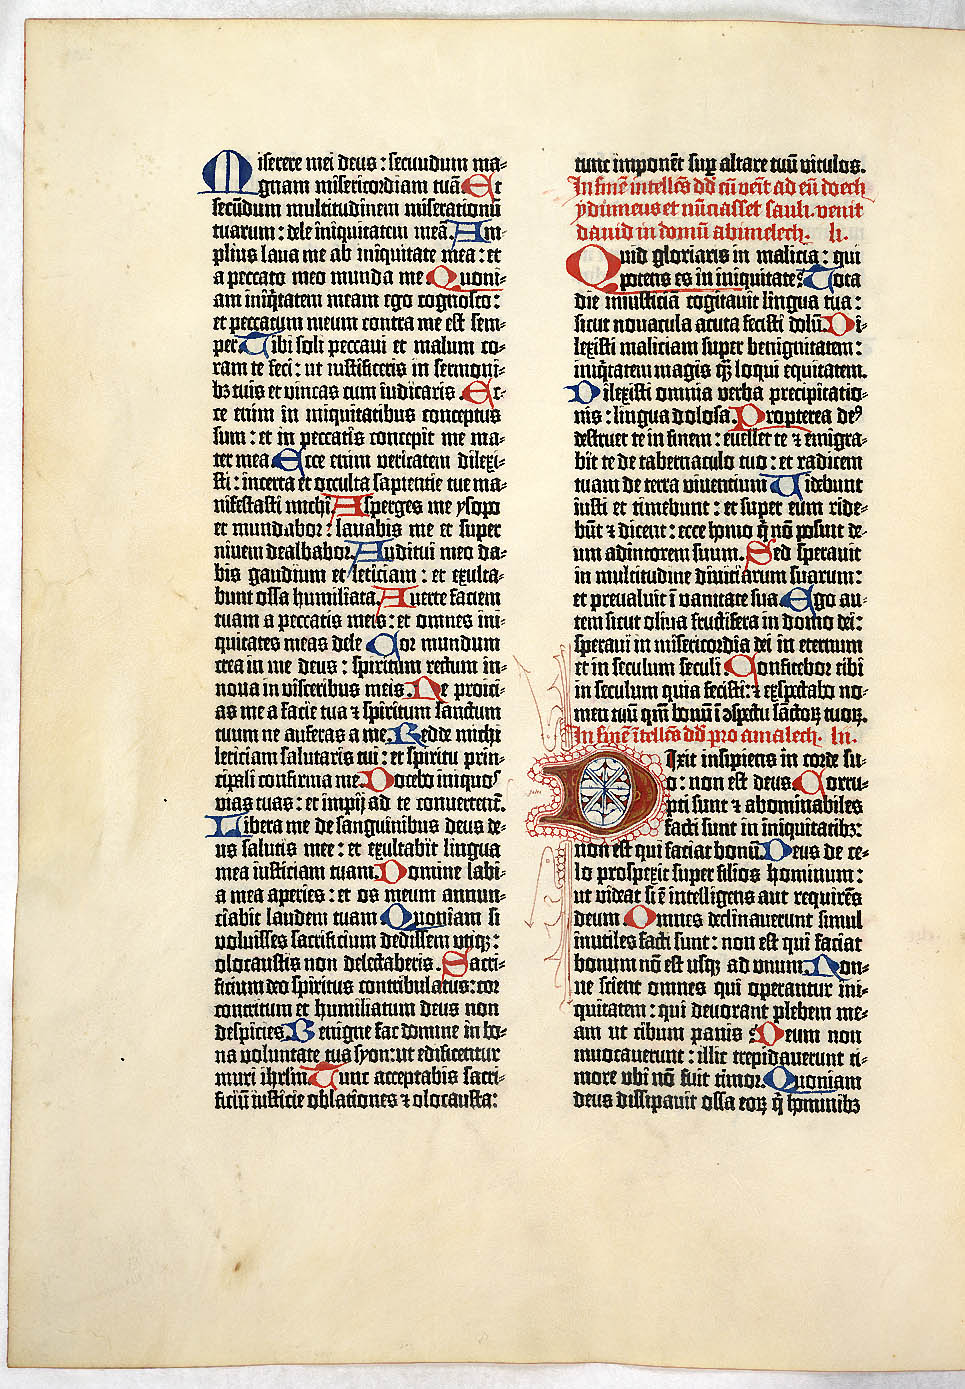 Miserere mei deus : secundum ma⸗
gnam misericordiam tuā. Et
secūdum multitudinem miserationū
tuarum : dele iniquitatem meā. Am⸗
plius laua me ab iniquitate mea : et
a peccato meo munda me. Quoni⸗
am iniq̄tatem meam ego cognosco :
et peccatum meum contra me est sem⸗
per. Tibi soli peccaui et malum co⸗
ram te feci : ut iustificeris in sermoni⸗
bꝫ tuis et vincas cum iudicaris. Ec⸗
ce enim in iniquitatibus conceptus
sum : et in peccatis concepit me ma⸗
ter mea. Ecce enim veritatem dilexi⸗
sti : incerta et occulta sapientie tue ma⸗
nifestasti michi. Asperges me ysopo
et mundabor : lauabis me et super
niuem dealbabor. Auditui meo da⸗
bis gaudium et leticiam : et exulta⸗
bunt ossa humiliata. Auerte faciem
tuam a peccatis meis : et omnes ini⸗
quitates meas dele. Cor mundum
crea in me deus : spiritum rectum in⸗
noua in visceribus meis. Ne proici⸗
as me a facie tua ⁊ spiritum sanctum
tuum ne auferas a me. Redde michi
leticiam salutaris tui : et spiritu prin⸗
cipali confirma me. Docebo iniquos
vias tuas : et impij ad te conuertent᷑.
Libera me de sanguinibus deus de⸗
us salutis mee : et exultabit lingua
mea iusticiam tuam. Domine labi⸗
a mea aperies : et os meum annun⸗
ciabit laudem tuam. Quoniam si
voluisses sacrificium dedissem vtiqꝫ :
olocaustis non delectaberis. Sacri⸗
ficium deo spiritus contribulatus : cor
contritum et humiliatum deus non
despicies. Benigne fac domine in bo⸗
na voluntate tua syon : ut edificentur
muri ihrl̄m. Tunc acceptabis sacri⸗
ficiū iusticie oblationes ⁊ olocausta :
tunc imponēt sup̲ altare tuū vitulos.
In finē intellc̄s dd̄ cū venīt ad eū doech
ydumeus et nūciasset sauli. venit
dauid in domū abimelech. li.
Quid gloriaris in malicia : qui
potens es in iniquitate? Tota
die iniusticiā cogitauit lingua tua :
sicut nouacula acuta fecisti dolū. Di⸗
lexisti maliciam super benignitatem :
iniq̄tatem magis q̄ꝫ loqui equitatem.
Dilexisti omnia verba precipitatio⸗
nis : lingua dolosa. Propterea deꝰ
destruet te in finem : euellet te ⁊ emigra⸗
bit te de tabernaculo tuo : et radicem
tuam de terra viuentium. Uidebunt
iusti et timebunt : et super eum ride⸗
būt ⁊ dicent : ecce homo q̄ nō posuit de⸗
um adiutorem suum. Sed sperauit
in multitudine diuiciarum suarum :
et preualuit ī vanitate sua. Ego au⸗
tem sicut oliua fructifera in domo dei :
speraui in misericordia dei in eternum
et in seculum seculi. Confitebor tibi
in seculum quia fecisti : ⁊ exspectabo no⸗
men tuū qm̄ bonū ī ↄspectu sāctoꝝ tuoꝝ.
In finē ītellc̄s dd̄ pro amalech. lii.
Dixit insipiens in corde su⸗
o : non est deus. Corru⸗
pti sunt ⁊ abominabiles
facti sunt in iniquitatibꝫ :
non est qui faciat bonū. Deus de ce⸗
lo prospexit super filios hominum :
ut videat si ē intelligens aut requirēs
deum. Omnes declinauerunt simul
inutiles facti sunt : non est qui faciat
bonum nō est usqꝫ ad vnum. Non⸗
ne scient omnes qui operantur ini⸗
quitatem : qui deuorant plebem me⸗
am ut cibum panis? Deum non
inuocauerunt : illic trepidauerunt ti⸗
more vbi nō fuit timor. Quoniam
deus dissipauit ossa eoꝝ q̄ hominibꝫ